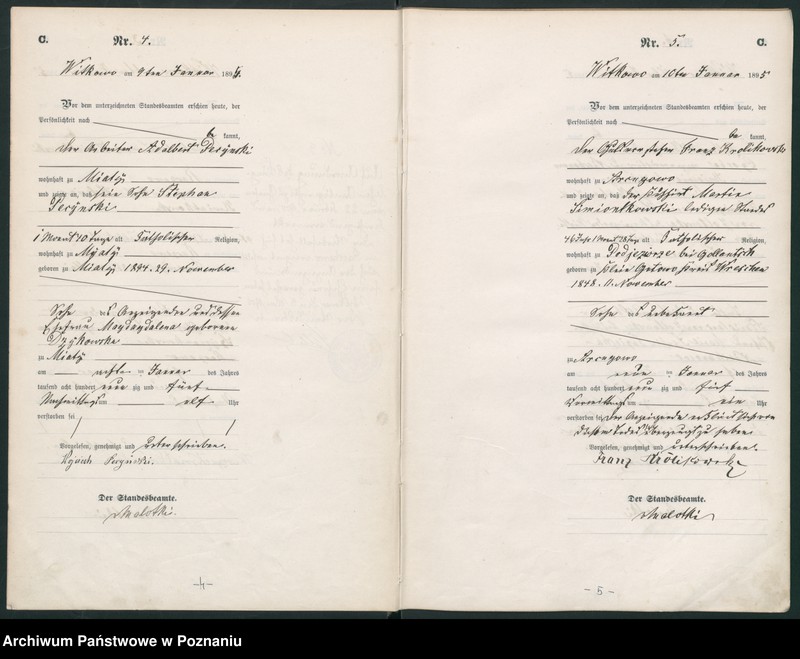 C. Nr. 4.
Witkowo am 9ten Januar 1895.
Vor dem unterzeichneten Standesbeamten erschien heute, der
Persönlichkeit nach
be kannt,
der Arbeiter Adalbert
wohnhaft zu Miaty
und zeigte an, daß sein Sohn Stephan
1 Monat 10 Tage alt katholischer Religion,
wohnhaft zu Miaty
geboren zu Miaty 1894. 29. November
Sohn des Anzeigenden und dessen
Ehefrau Magdagdalena geborene
zu Miaty
am achten Januar des Jahres
tausend acht hundert neun zig und fünf
Nachmittags um elf Uhr
verstorben sei
Vorgelesen, genehmigt und unterschrieben.
Der Standesbeamte.
Malotki.
-4-
Nr. 5. C.
Witkowo am 10ten Januar 1895
Vor dem unterzeichneten Standesbeamten erschien heute, der
Persönlichkeit nach
be kannt,
der Franz Krolikowski
wohnhaft zu Strzyzewo
und zeigte an, daß der Martin
ledigen Standes
46 Jahr 1 Monat 28 Tage katholischer Religion,
wohnhaft zu bei Gollantsch
geboren zu Klein Kreis Wreschen
1848. November
Sohn des unbekannt
zu
am neun Januar des Jahres
tausend acht hundert neun zig und fünf
Vormittags um ein Uhr
verstorben sei, der Anzeigende erklärt sich von
diesem Tode Überzeugt zu haben.
Vorgelesen, genehmigt und unterschrieben.
Franz Królikowski
Der Standesbeamte.
Malotki
- 5 -
Archiwum Państwowe w Poznaniu